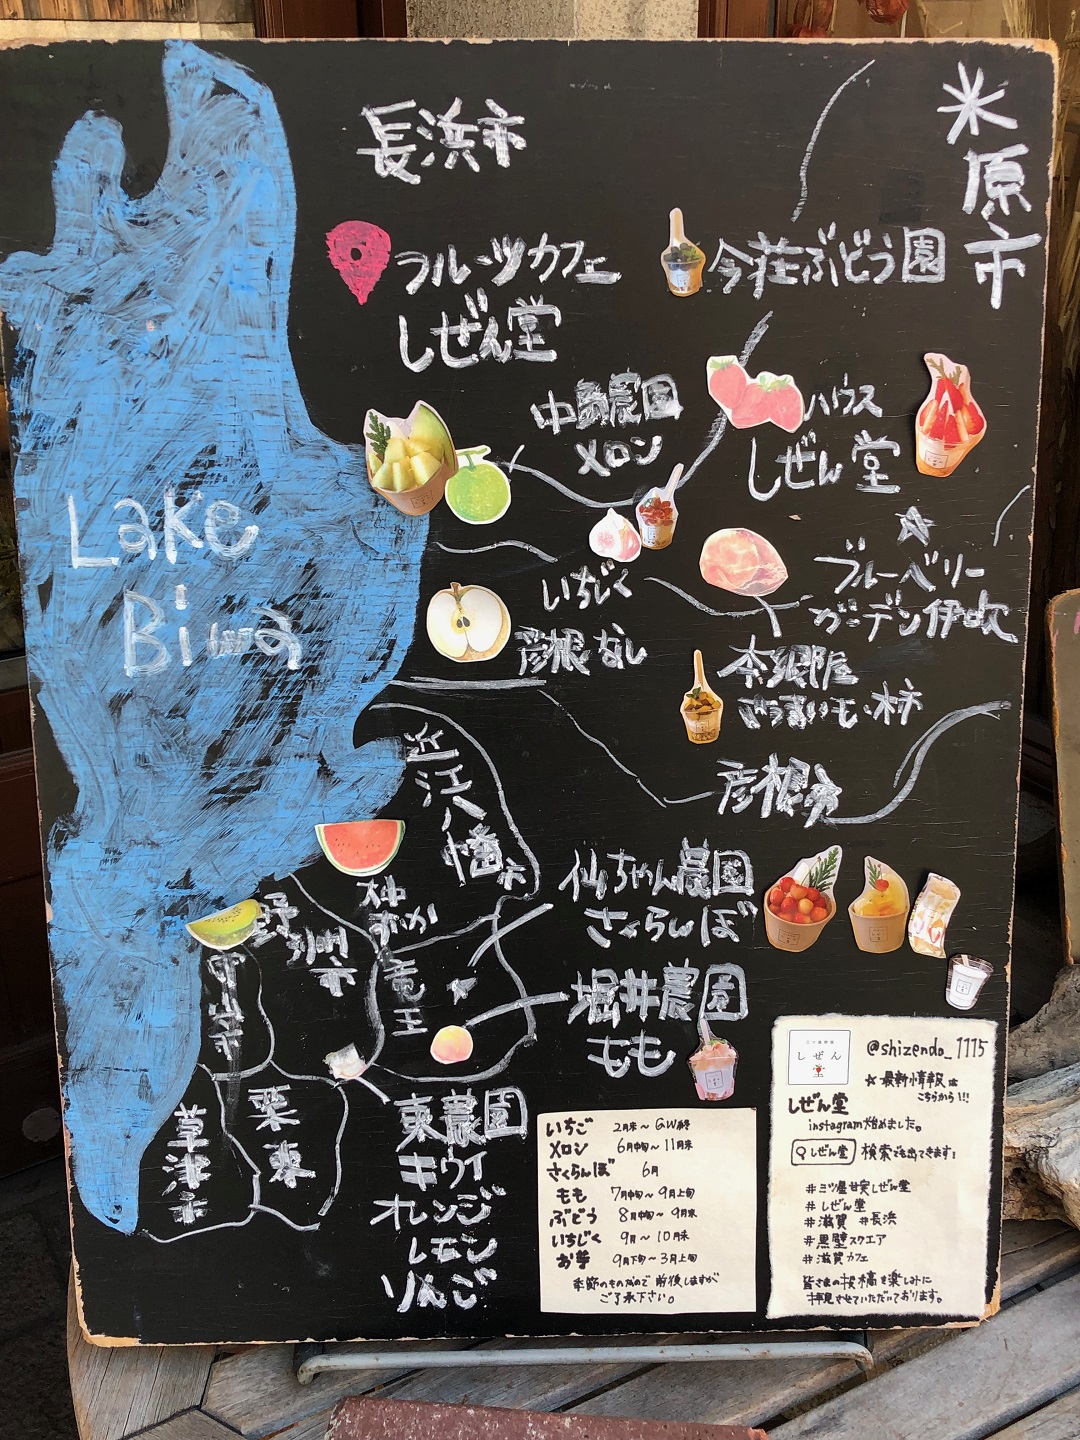 長浜市
米原市
フルーツカフェ
しぜん堂
今荘ぶどう園
中島農園
メロン
ハウス
しぜん堂
Lake
Biwa
いちじく
☆
ブルーベリー
ガーデン伊吹
彦根なし
本郷屋
さつまいも・柿
彦根市
近江八幡市
仙ちゃん農園
さくらんぼ
野洲市
神
すいか
竜王
守山市
堀井農園
もも
栗東
草津市
東農園
キウイ
オレンジ
レモン
りんご
いちご 2月末〜GW終
メロン 6月中旬〜11月末
さくらんぼ 6月
もも 7月中旬〜9月上旬
ぶどう 8月中旬〜9月末
いちじく 9月〜10月末
お芋 9月下旬〜3月上旬
季節のものなので前後しますが
ご了承下さい。
しぜん堂
@shizendo_1115
☆最新情報は
こちらから!!!
しぜん堂
instagram始めました。
しぜん堂 検索でも出てきます!
#三ツ屋甘実しぜん堂
#しぜん堂
#滋賀 #長浜
#黒壁スクエア
#滋賀カフェ
皆さまの投稿を楽しみに
拝見させていただいております。